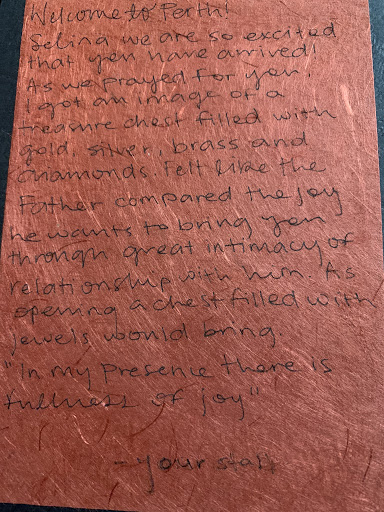 Welcome to Perth!
Selina we are so excited
that you have arrived!
As we prayed for you,
I got an image of a
treasure chest filled with
gold, silver, brass and
diamonds. Felt like the
Father compared the joy
he wants to bring you
through great intimacy of
relationship with him. As
opening a chest filled with
jewels would bring.
"In my presence there is
fullness of joy"
- your staff